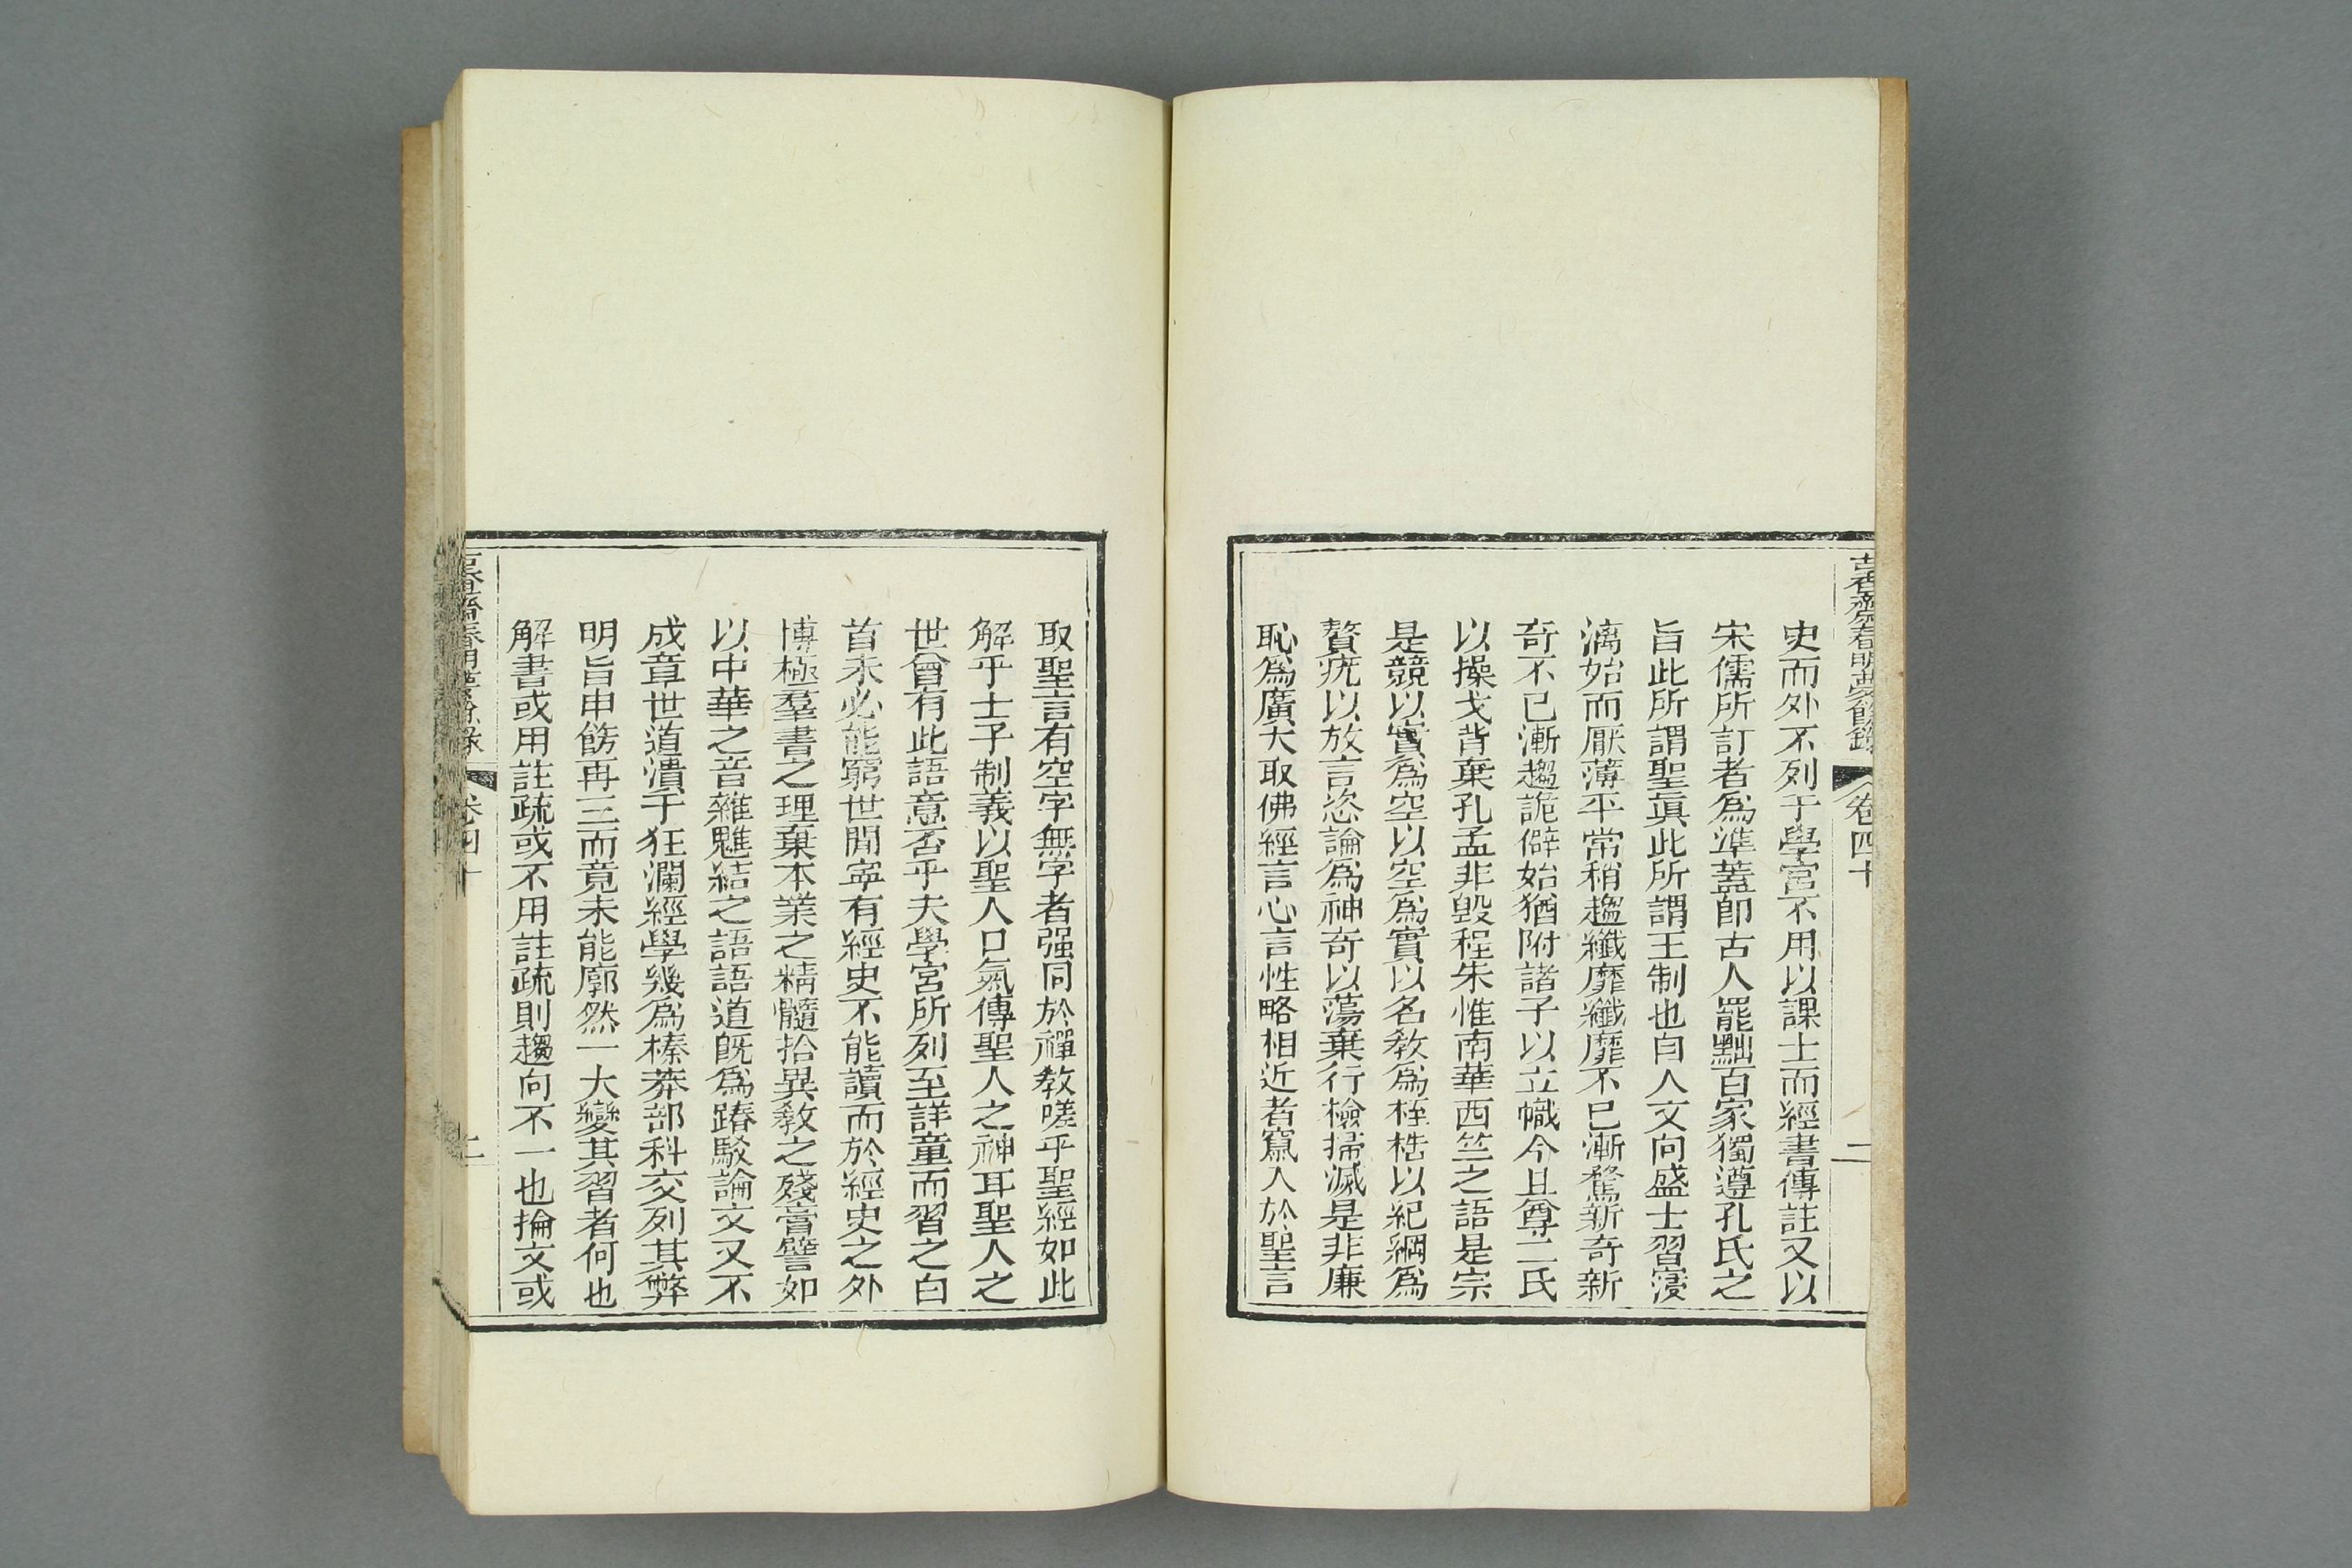 古香齋春明夢餘錄
卷四十
二
史而外不列于學宮不用以課士而經書傳註又以
宋儒所訂者爲準蓋卽古人罷黜百家獨遵孔氏之
旨此所謂聖眞此所謂王制也自人文向盛士習寖
漓始而厭薄平常稍趨纖靡纖靡不已漸騖新奇新
奇不已漸趨詭僻始猶附諸子以立幟今且尊二氏
以操戈背棄孔孟非毀程朱惟南華西竺之語是宗
是競以實爲空以空爲實以名敎爲桎梏以紀綱爲
贅疣以放言恣論爲神奇以蕩棄行檢掃滅是非廉
恥爲廣大取佛經言心言性略相近者竄入於聖言
取聖言有空字無字者强同於禪敎嗟乎聖經如此
解乎士子制義以聖人口氣傳聖人之神耳聖人之
世曾有此語意否乎夫學宮所列至詳童而習之白
首未必能窮世閒寜有經史不能讀而於經史之外
博極羣書之理棄本業之精髓拾異敎之殘膏譬如
以中華之音雜魋結之語語道旣爲踳駁論文又不
成章世道潰于狂瀾經學幾爲榛莽部科交列其弊
明旨申飭再三而竟未能廓然一大變其習者何也
解書或用註疏或不用註疏則趨向不一也掄文或
春明夢餘錄
卷四十
二